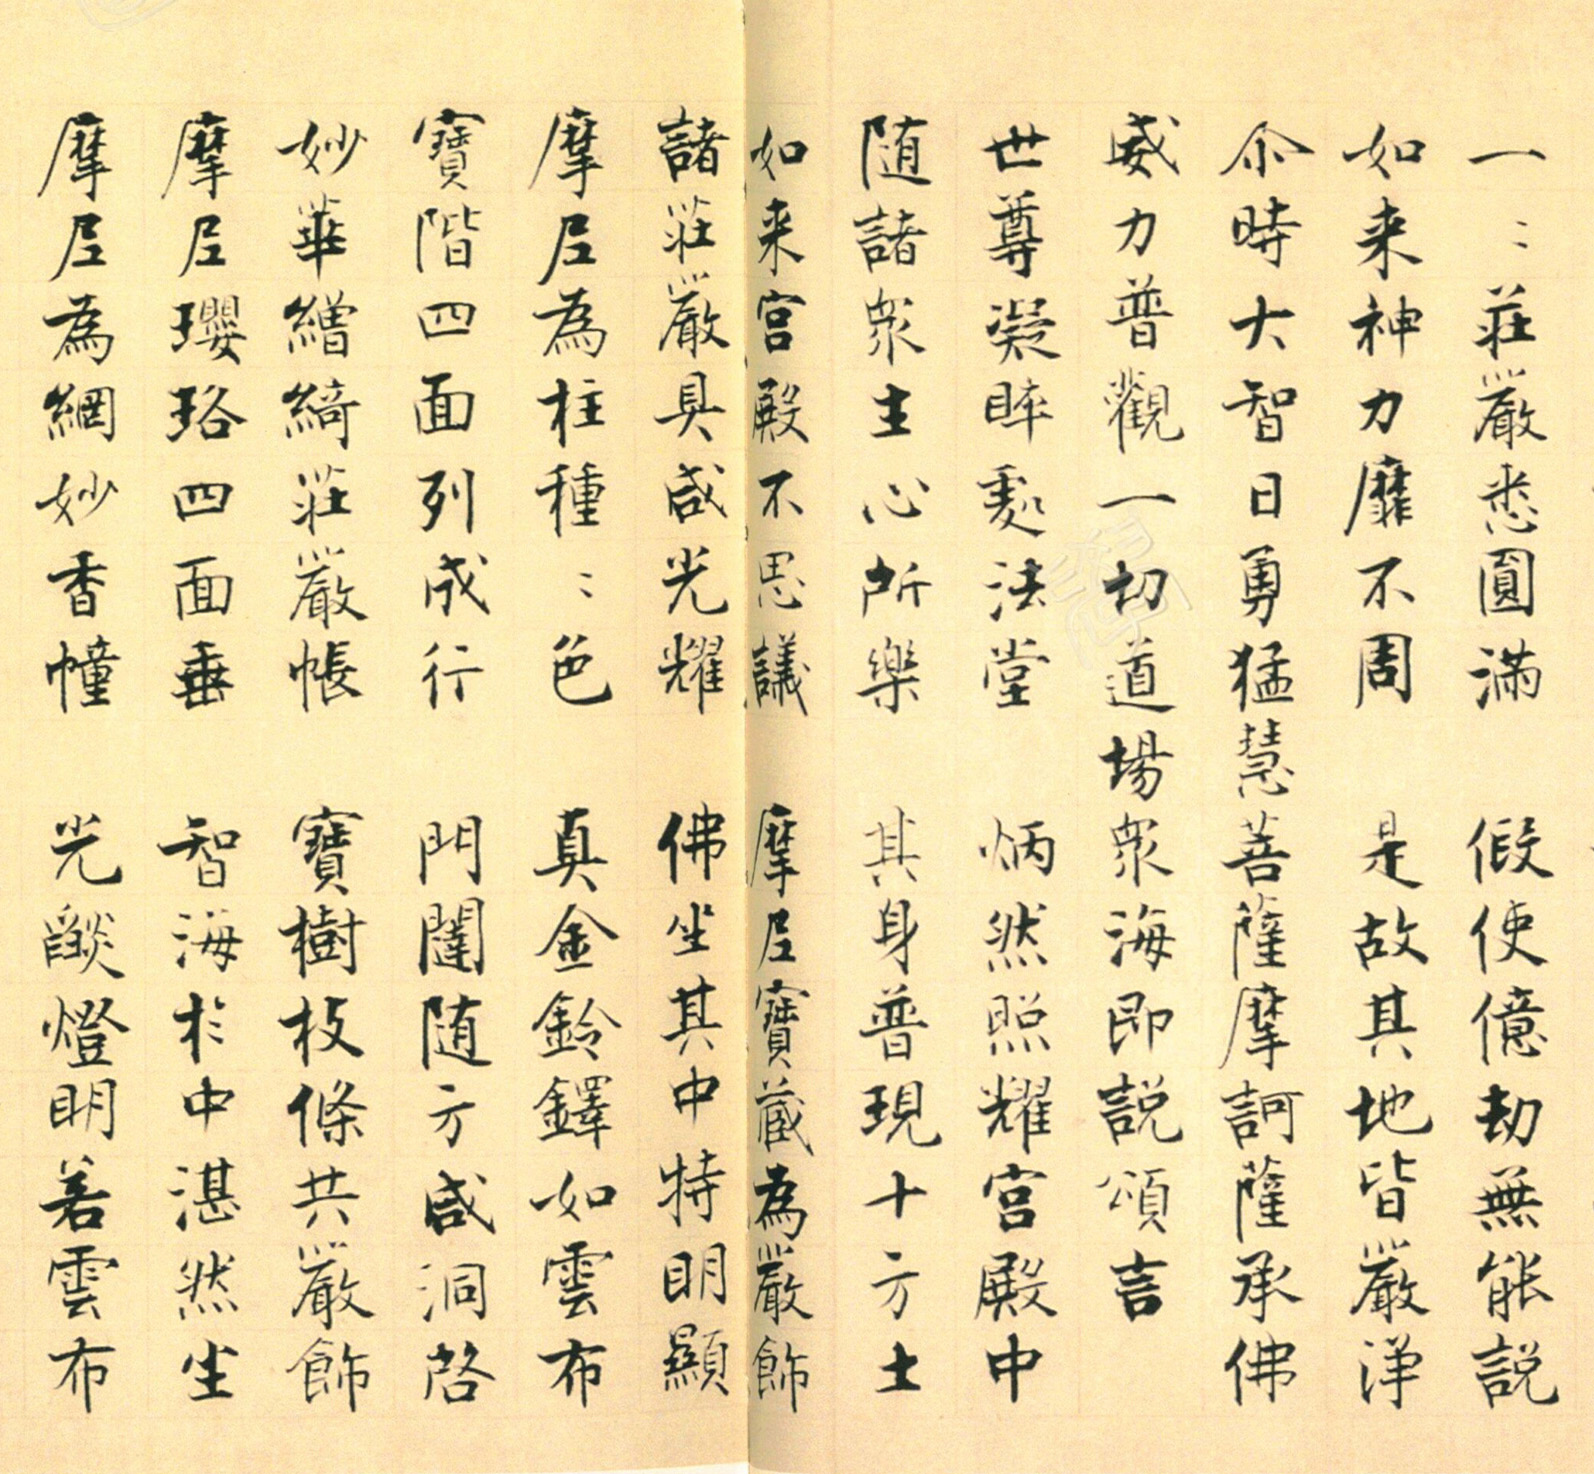 一〻莊嚴悉圓滿　假使億劫無能說
如来神力靡不周　是故其地皆嚴淨
尒時大智日勇猛慧菩薩摩訶薩承佛
威力普觀一切道場衆海即説頌言
世尊凝睟處法堂　炳然照耀宮殿中
随諸衆生心所樂　其身普現十方土
如来宮殿不思議　摩尼寶藏為嚴飾
諸莊嚴具咸光耀　佛坐其中特明顯
摩尼為柱種〻色　真金鈴鐸如雲布
寶階四面列成行　門闥随方咸洞啓
妙華繒綺莊嚴帳　寶樹枝條共嚴飾
摩尼瓔珞四面垂　智海於中湛然坐
摩尼為網妙香幢　光燄燈明若雲布